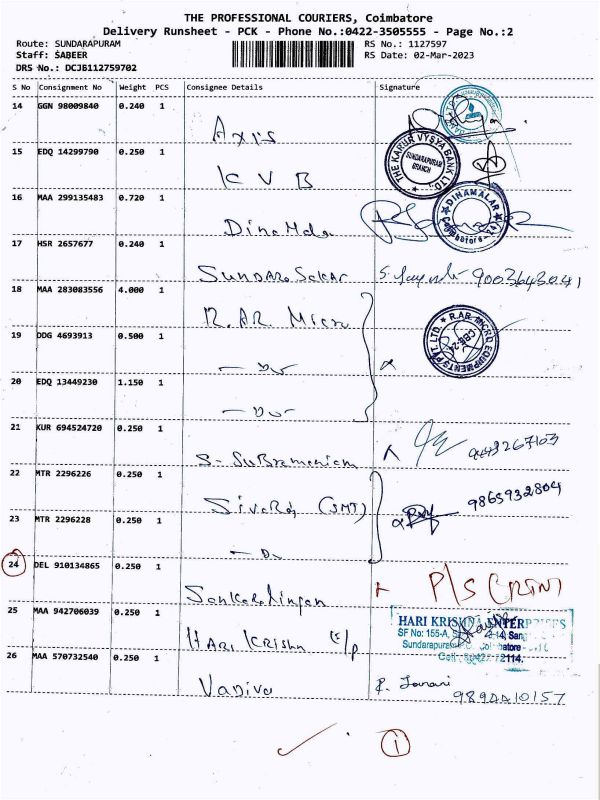 THE PROFESSIONAL COURIERS, Coimbatore
Delivery Runsheet - PCK - Phone No.:0422-3505555 - Page No.:2
Route: SUNDARAPURAM RS No.: 1127597
Staff: SABEER RS Date: 02-Mar-2023
DRS No.: DCJB112759702
S No Consignment No Weight PCS Consignee Details Signature
14 GGN 98009840 0.240 1
Axis
15 EDQ 14299790 0.250 1
THE KARUR VYSYA BANK LTD.
SUNDARAPURAM
BRANCH
KVB
16 MAA 299135483 0.720 1
DINAMALAR
Coimbatore
DinaMala
17 HSR 2657677 0.240 1
9003643041
18 MAA 283083556 4.000 1
R.AR. Micro
R.AR. MICRO EQUIPMENTS PVT. LTD.
CBE-24
19 DDG 4693913 0.500 1
- Do -
20 EDQ 13449230 1.150 1
- Do -
21 KUR 694524720 0.250 1
S. Subramaniam
9443267103
22 MTR 2296226 0.250 1
Sivaraj (SMT)
9865932804
23 MTR 2296228 0.250 1
- Do
24 DEL 910134865 0.250 1
Sankaralingam
P/S
25 MAA 942706039 0.250 1
HARI KRISHNA ENTERPRISES
SF No: 155-A,
Sundarapuram
HARI KRISHN
26 MAA 570732540 0.250 1
Vadive
1